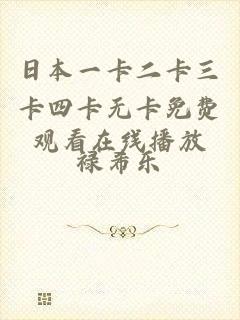 日本一卡二卡三
卡四卡无卡免费
观看在线播放
禄希乐